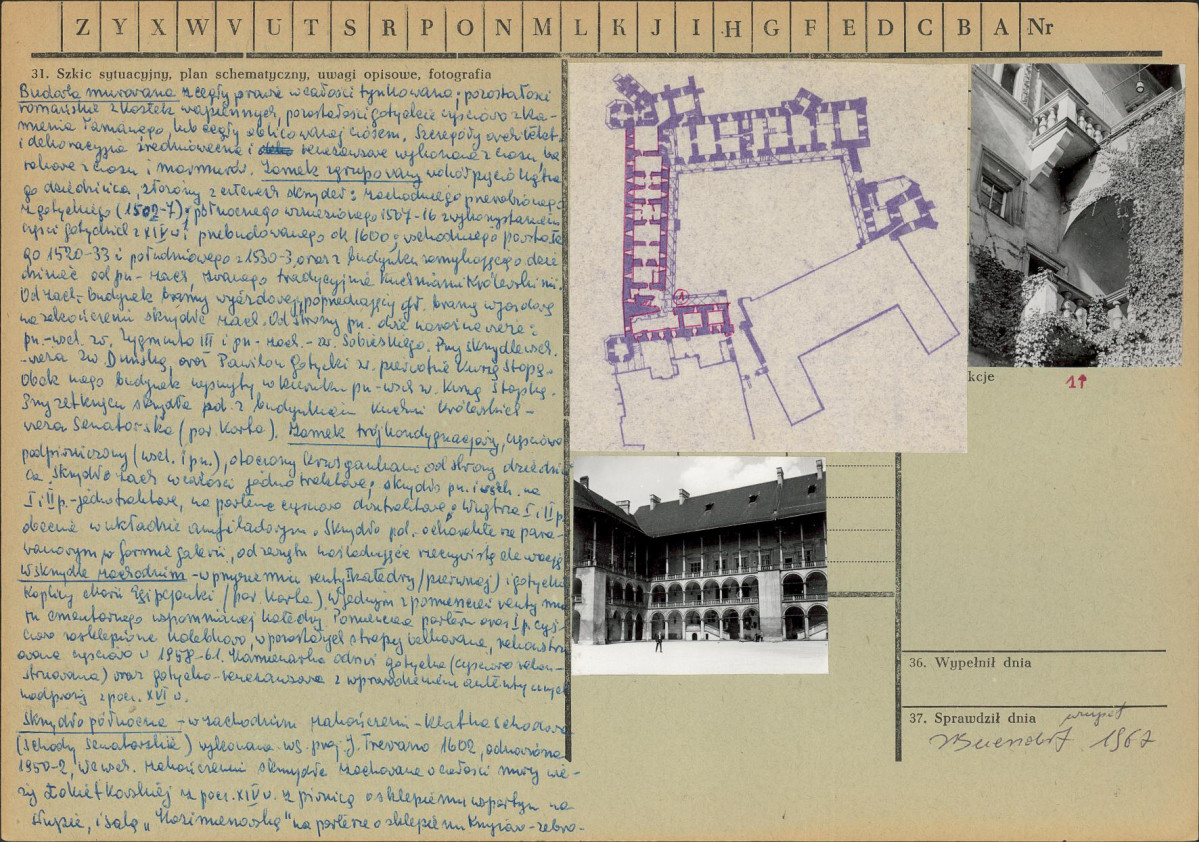 Z Y X W V U T S R P O N M L K J I H G F E D C B A Nr
31. Szkic sytuacyjny, plan schematyczny, uwagi opisowe, fotografia
Budowla murowana z cegły prawie w całości tynkowana; pozostałości
romańskie z kostek wapiennych, pozostałości gotyckie częściowo z ka-
mienia łamanego, lub cegły oblicowanej ciosem. Szczegóły architekt.
i dekoracyjne średniowieczne i renesansowe wykonane z ciosu, ba
rokowe z ciosu i marmuru. Zamek zgrupowany wokół
go dziedzińca, złożony z czterech skrzydeł: zachodniego przerobionego
z gotyckiego (1502-7); północnego wzniesionego 1507-16 z wykorzystaniem
części gotyckiej z XIV w. i przebudowanego ok 1600; wschodniego powstałe
go 1520-33 i południowego z 1530-3, oraz z budynku zamykającego dzie
dziniec od pn-zach, zwanego tradycyjnie Kuchniami Królewskimi.
Od zach. budynek bramy wjazdowej, poprzedzający gł. bramę wjazdową
na zakończeniu skrzydła zach. Od strony pn. dwie narożne wieże:
pn-wsch. zw. Zygmunta III i pn-zach - zw. Sobieskiego. Przy skrzydle wsch.
-wieża zw Duńską, oraz Pawilon Gotycki zw. pierwotnie Kurzą Stopą-
Obok niego budynek wysunięty w kierunku pn-wsch zw. Kurzą Stopką.
Przy zetknięciu skrzydła poł. z budynkiem Kuchni Królewskich-
wieża Senatorska (por. Karta). Zamek trójkondygnacjowy, częściowo
podpiwniczony (wsch. i pn.), otoczony krużgankami od strony dziedziń
ca. Skrzydło zach w całości jednotraktowe; skrzydło pn. i wsch. na
I i II p.-jednotraktowe, na parterze częściowo dwutraktowe; Wnętrza I i II p.
obecnie w układzie amfiladowym. Skrzydło poł. o charakterze para-
wanowym w formie galerii, od zewnątrz naśladujące rzeczywistą elewację
W skrzydle zachodnim - w przyziemiu reszty katedry (pierwszej) i gotyckiej
Kaplicy Marii Egipcjanki (por Karta). W jednym z pomieszczeń reszty mu
ru cmentarnego wspomnianej katedry. Pomieszcz. parteru oraz I p. częś-
ciowo sklepione kolebkowo, w pozostałych stropy belkowane, rekonstru
owane częściowo w 1958-61. Kamieniarka odrzwi gotycka (częściowo rekon-
struowana) oraz gotycko-renesansowa z wprawieniem autentycznych
nadproży z pocz. XVI w.
Skrzydło północne - w zachodnim zakończeniu - Klatka schodowa
(Schody Senatorskie) wykonana wg. proj. J. Trevano 1602, odnowiona
1950-2, we wsch. zakończeniu skrzydła zachowane w całości mury wie-
ży Łokietkowskiej z pocz. XIV w. z piwnicą o sklepieniu wspartym na
słupie, i salą „Kazimierzowską" na parterze o sklepieniu krzyżowo-żebro-
kcje
1↑
36. Wypełnił dnia
37. Sprawdził dnia
1967